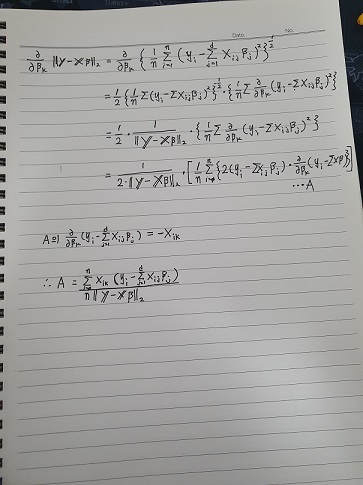 Date. No.
∂/∂βₖ ||Y−Xβ||₂ = ∂/∂βₖ {1/n Σᵢ₌₁ⁿ (yᵢ − Σⱼ₌₁ᵈ Xᵢⱼβⱼ)²}^(1/2)
= 1/2 {1/n Σ(yᵢ − ΣXᵢⱼβⱼ)²}^(-1/2) · {1/n Σ ∂/∂βₖ (yᵢ − ΣXᵢⱼβⱼ)²}
= 1/2 · 1/||Y−Xβ||₂ · {1/n Σ ∂/∂βₖ (yᵢ − ΣXᵢⱼβⱼ)²}
= 1/(2·||Y−Xβ||₂) · [1/n Σᵢ₌₁ⁿ {2(yᵢ − ΣXᵢⱼβⱼ) · ∂/∂βₖ (yᵢ − ΣXβ)}]
⋯A
A의 ∂/∂βₖ (yᵢ − Σⱼ₌₁ᵈ Xᵢⱼβⱼ) = −Xᵢₖ
∴ A = Σᵢ₌₁ⁿ Xᵢₖ (yᵢ − Σⱼ₌₁ᵈ Xᵢⱼβⱼ) / n||Y−Xβ||₂